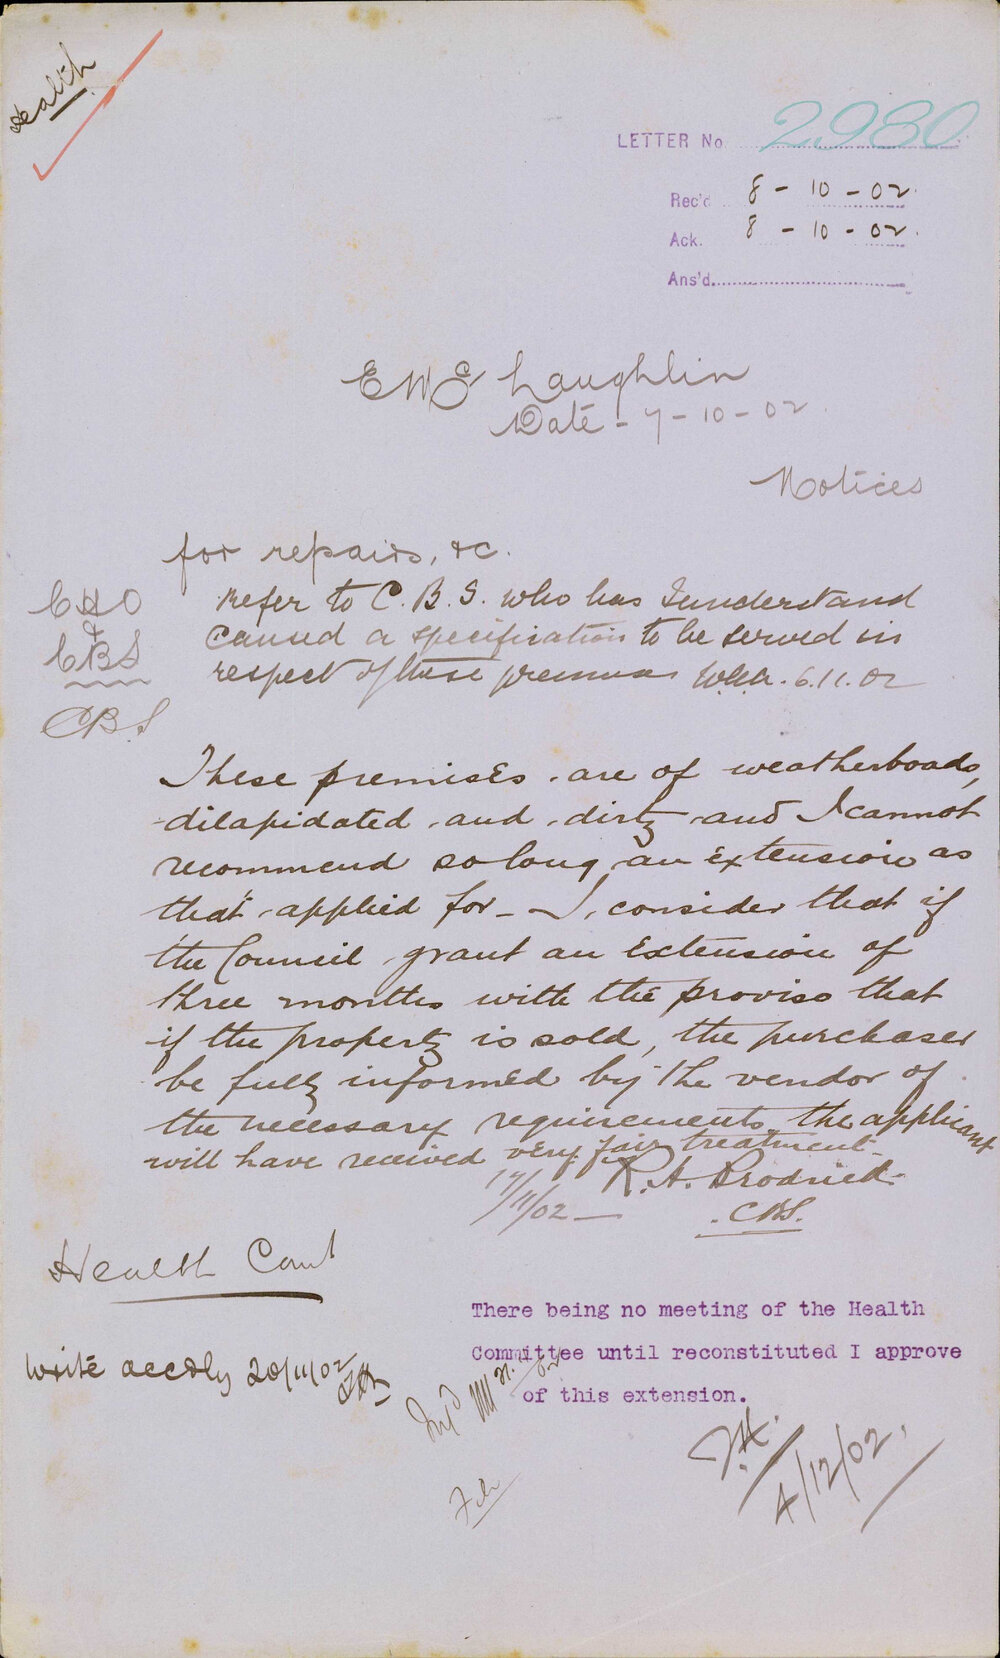 Health
LETTER No 2980
Rec'd 8 - 10 - 02.
Ack. 8 - 10 - 02.
Ans'd.
E McLaughlin
Date - 7 - 10 - 02.
Notices
for repairs, &c.
CHO
&
CBS
CBS
Refer to C.B.S. who has I understand
caused a specification to be served in
respect of these premises 6.11.02
These premises are of weatherboads,
dilapidated and dirty and I cannot
recommend so long an extension as
that applied for - I consider that if
the Council grant an extension of
three months with the proviso that
if the property is sold, the purchaser
be fully informed by the vendor of
the necessary requirements, the applicant
will have received very fair treatment.
17/11/02 - R. A. Brodrick
CBS.
Health Comt
There being no meeting of the Health
Committee until reconstituted I approve
of this extension.
Write accdly 20/11/02
4/12/02.
File